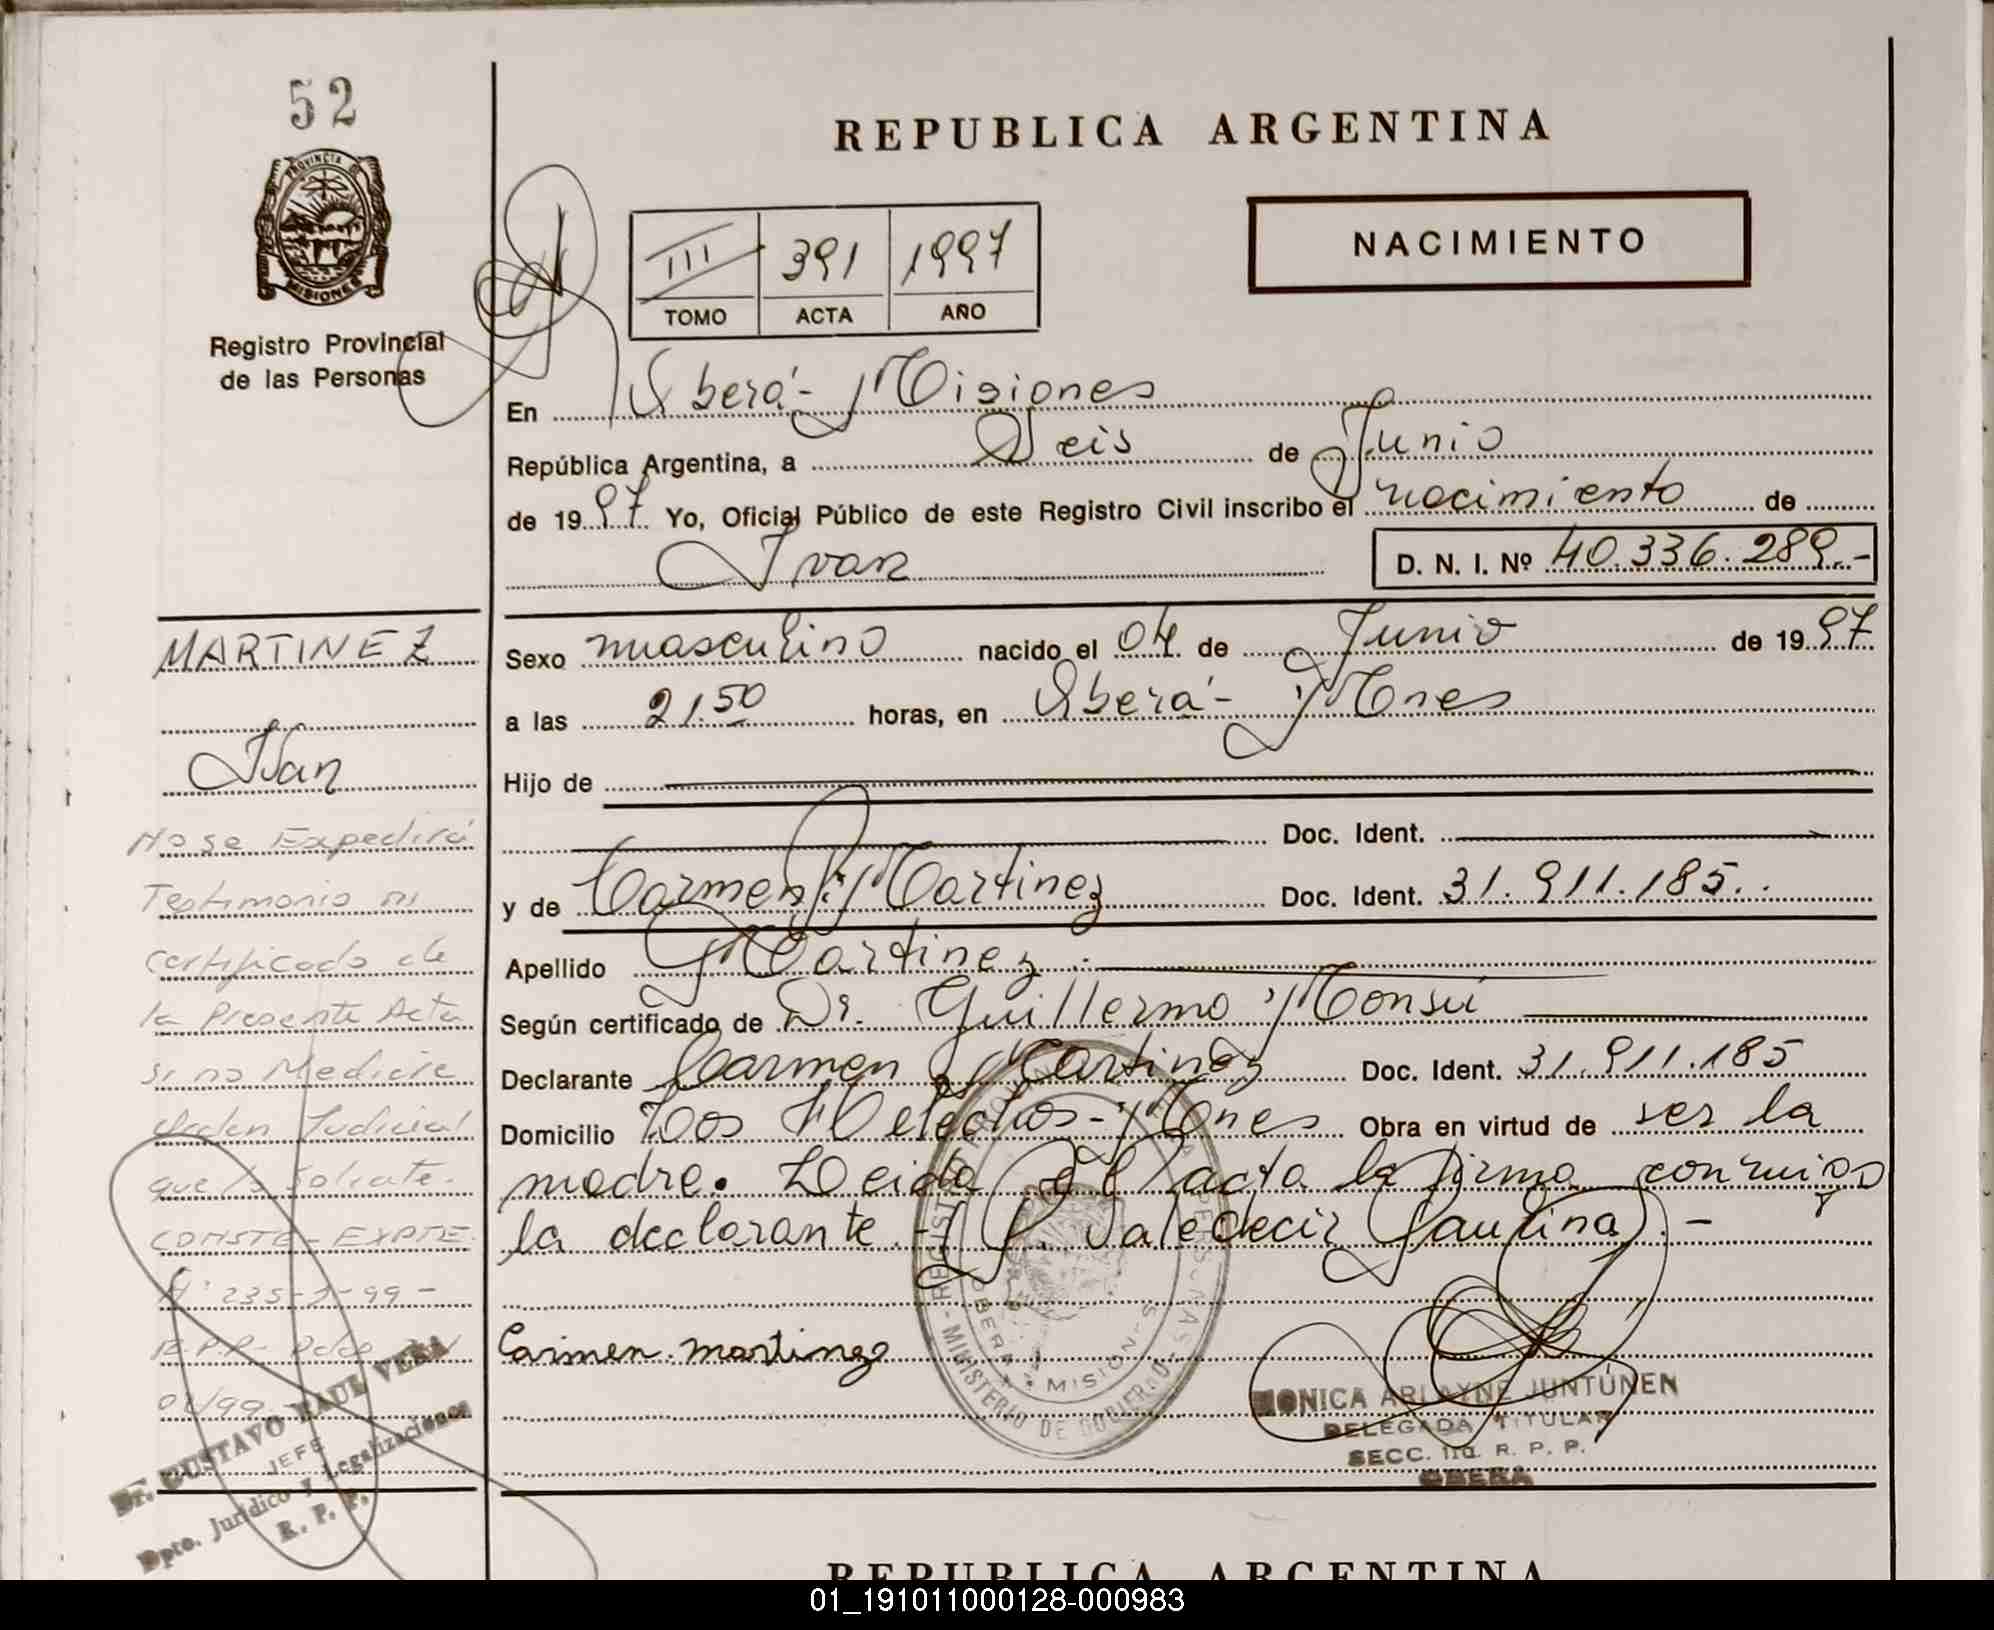 52
PROVINCIA DE
MISIONES
Registro Provincial
de las Personas
REPUBLICA ARGENTINA
NACIMIENTO
III 391 1997
TOMO ACTA AÑO
En Oberá - Misiones
República Argentina, a Seis de Junio
de 1997 Yo, Oficial Público de este Registro Civil inscribo el nacimiento de
Ivan D. N. I. Nº 40.336.289.-
MARTINEZ
Ivan
Sexo masculino nacido el 04 de Junio de 1997
a las 21.50 horas, en Oberá - Mnes
Hijo de
Doc. Ident.
y de Carmen Martinez Doc. Ident. 31.911.185..
Apellido Martinez .
Según certificado de Dr. Guillermo Monsú
Declarante Carmen Martinez Doc. Ident. 31.911.185
Domicilio Los Helechos - Mnes Obra en virtud de ser la
madre. Leida el acta la firma conmigo
la declarante.- (P. Valedecir Paulina).-
Carmen martinez
No se Expedirá
Testimonio ni
certificado de
la Presente Acta
si no Mediare
orden Judicial
que lo solicite.
CONSTE- EXPTE.
Nº 235-J-99-
R.P.P.
01/99
Dr. GUSTAVO RAUL VERA
JEFE
Dpto. Jurídico y Legalizaciones
R. P. P.
MINISTERIO DE GOBIERNO
OBERA
MISIONES
MONICA ARLAYNE JUNTUNEN
DELEGADA TITULAR
SECC. 1ra. R. P. P.
OBERA
REPUBLICA ARGENTINA
01_191011000128-000983